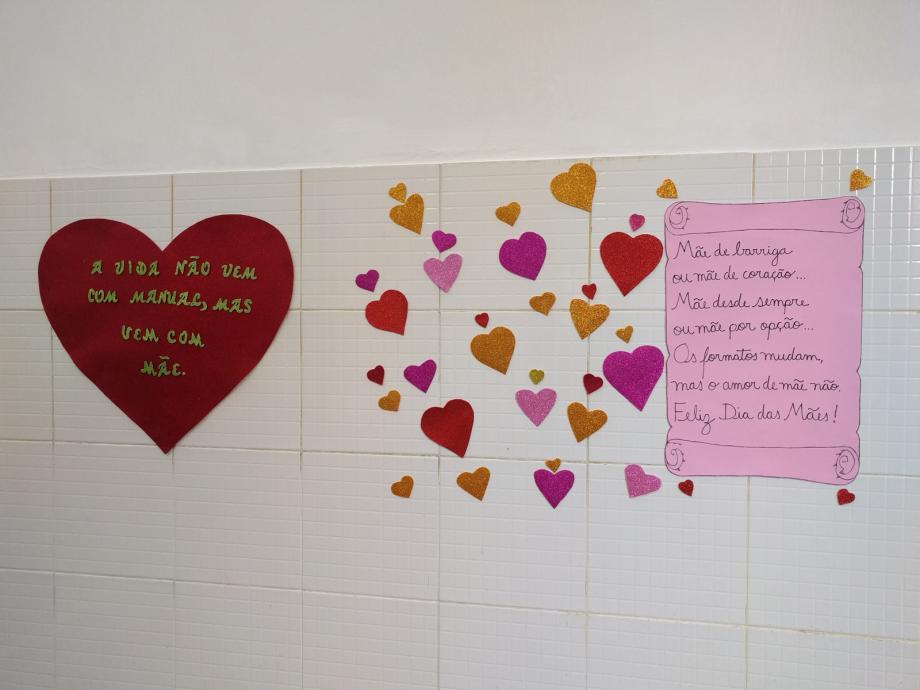 A VIDA NÃO VEM
COM MANUAL, MAS
VEM COM
MÃE.
Mãe de barriga
ou mãe de coração...
Mãe desde sempre
ou mãe por opção...
Os formatos mudam,
mas o amor de mãe não.
Feliz Dia das Mães!